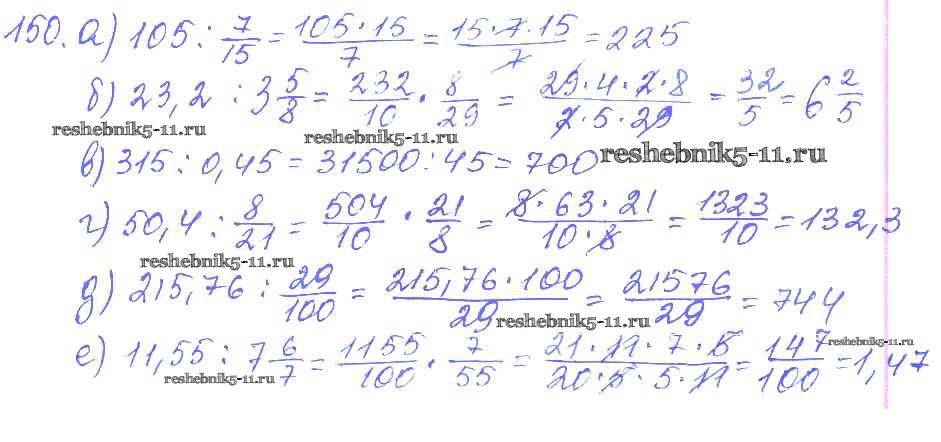 150. а) 105 : 7/15 = 105·15/7 = 15·7·15/7 = 225
б) 23,2 : 3 5/8 = 232/10 · 8/29 = 29·4·2·8/2·5·29 = 32/5 = 6 2/5
reshebnik5-11.ru reshebnik5-11.ru
в) 315 : 0,45 = 31500 : 45 = 700 reshebnik5-11.ru
г) 50,4 : 8/21 = 504/10 · 21/8 = 8·63·21/10·8 = 1323/10 = 132,3
reshebnik5-11.ru
д) 215,76 : 29/100 = 215,76·100/29 = 21576/29 = 744
reshebnik5-11.ru
е) 11,55 : 7 6/7 = 1155/100 · 7/55 = 21·11·7·5/20·5·5·11 = 147/100 = 1,47
reshebnik5-11.ru reshebnik5-11.ru